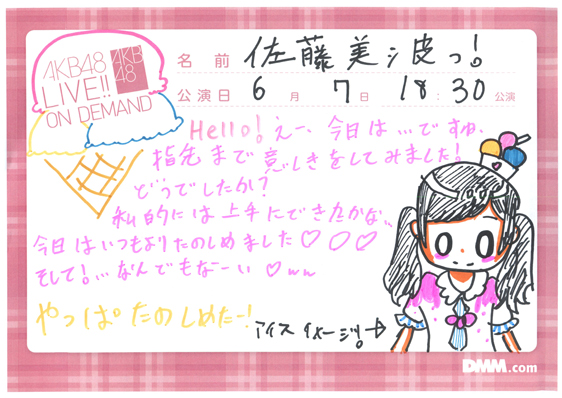 AKB48
LIVE!!
ON DEMAND
AKB
48
名前 佐藤美波っ!
公演日 6月 7日 18:30公演
Hello! えー、今日は…ですね、
指先まで意しきをしてみました!
どうでしたか?
私的には上手にできたかな、
今日はいつもよりたのしめました♡♡♡
そして!…なんでもなーい ♡ww
やっぱたのしめたー!
アイスイメージ!→
DMM.com